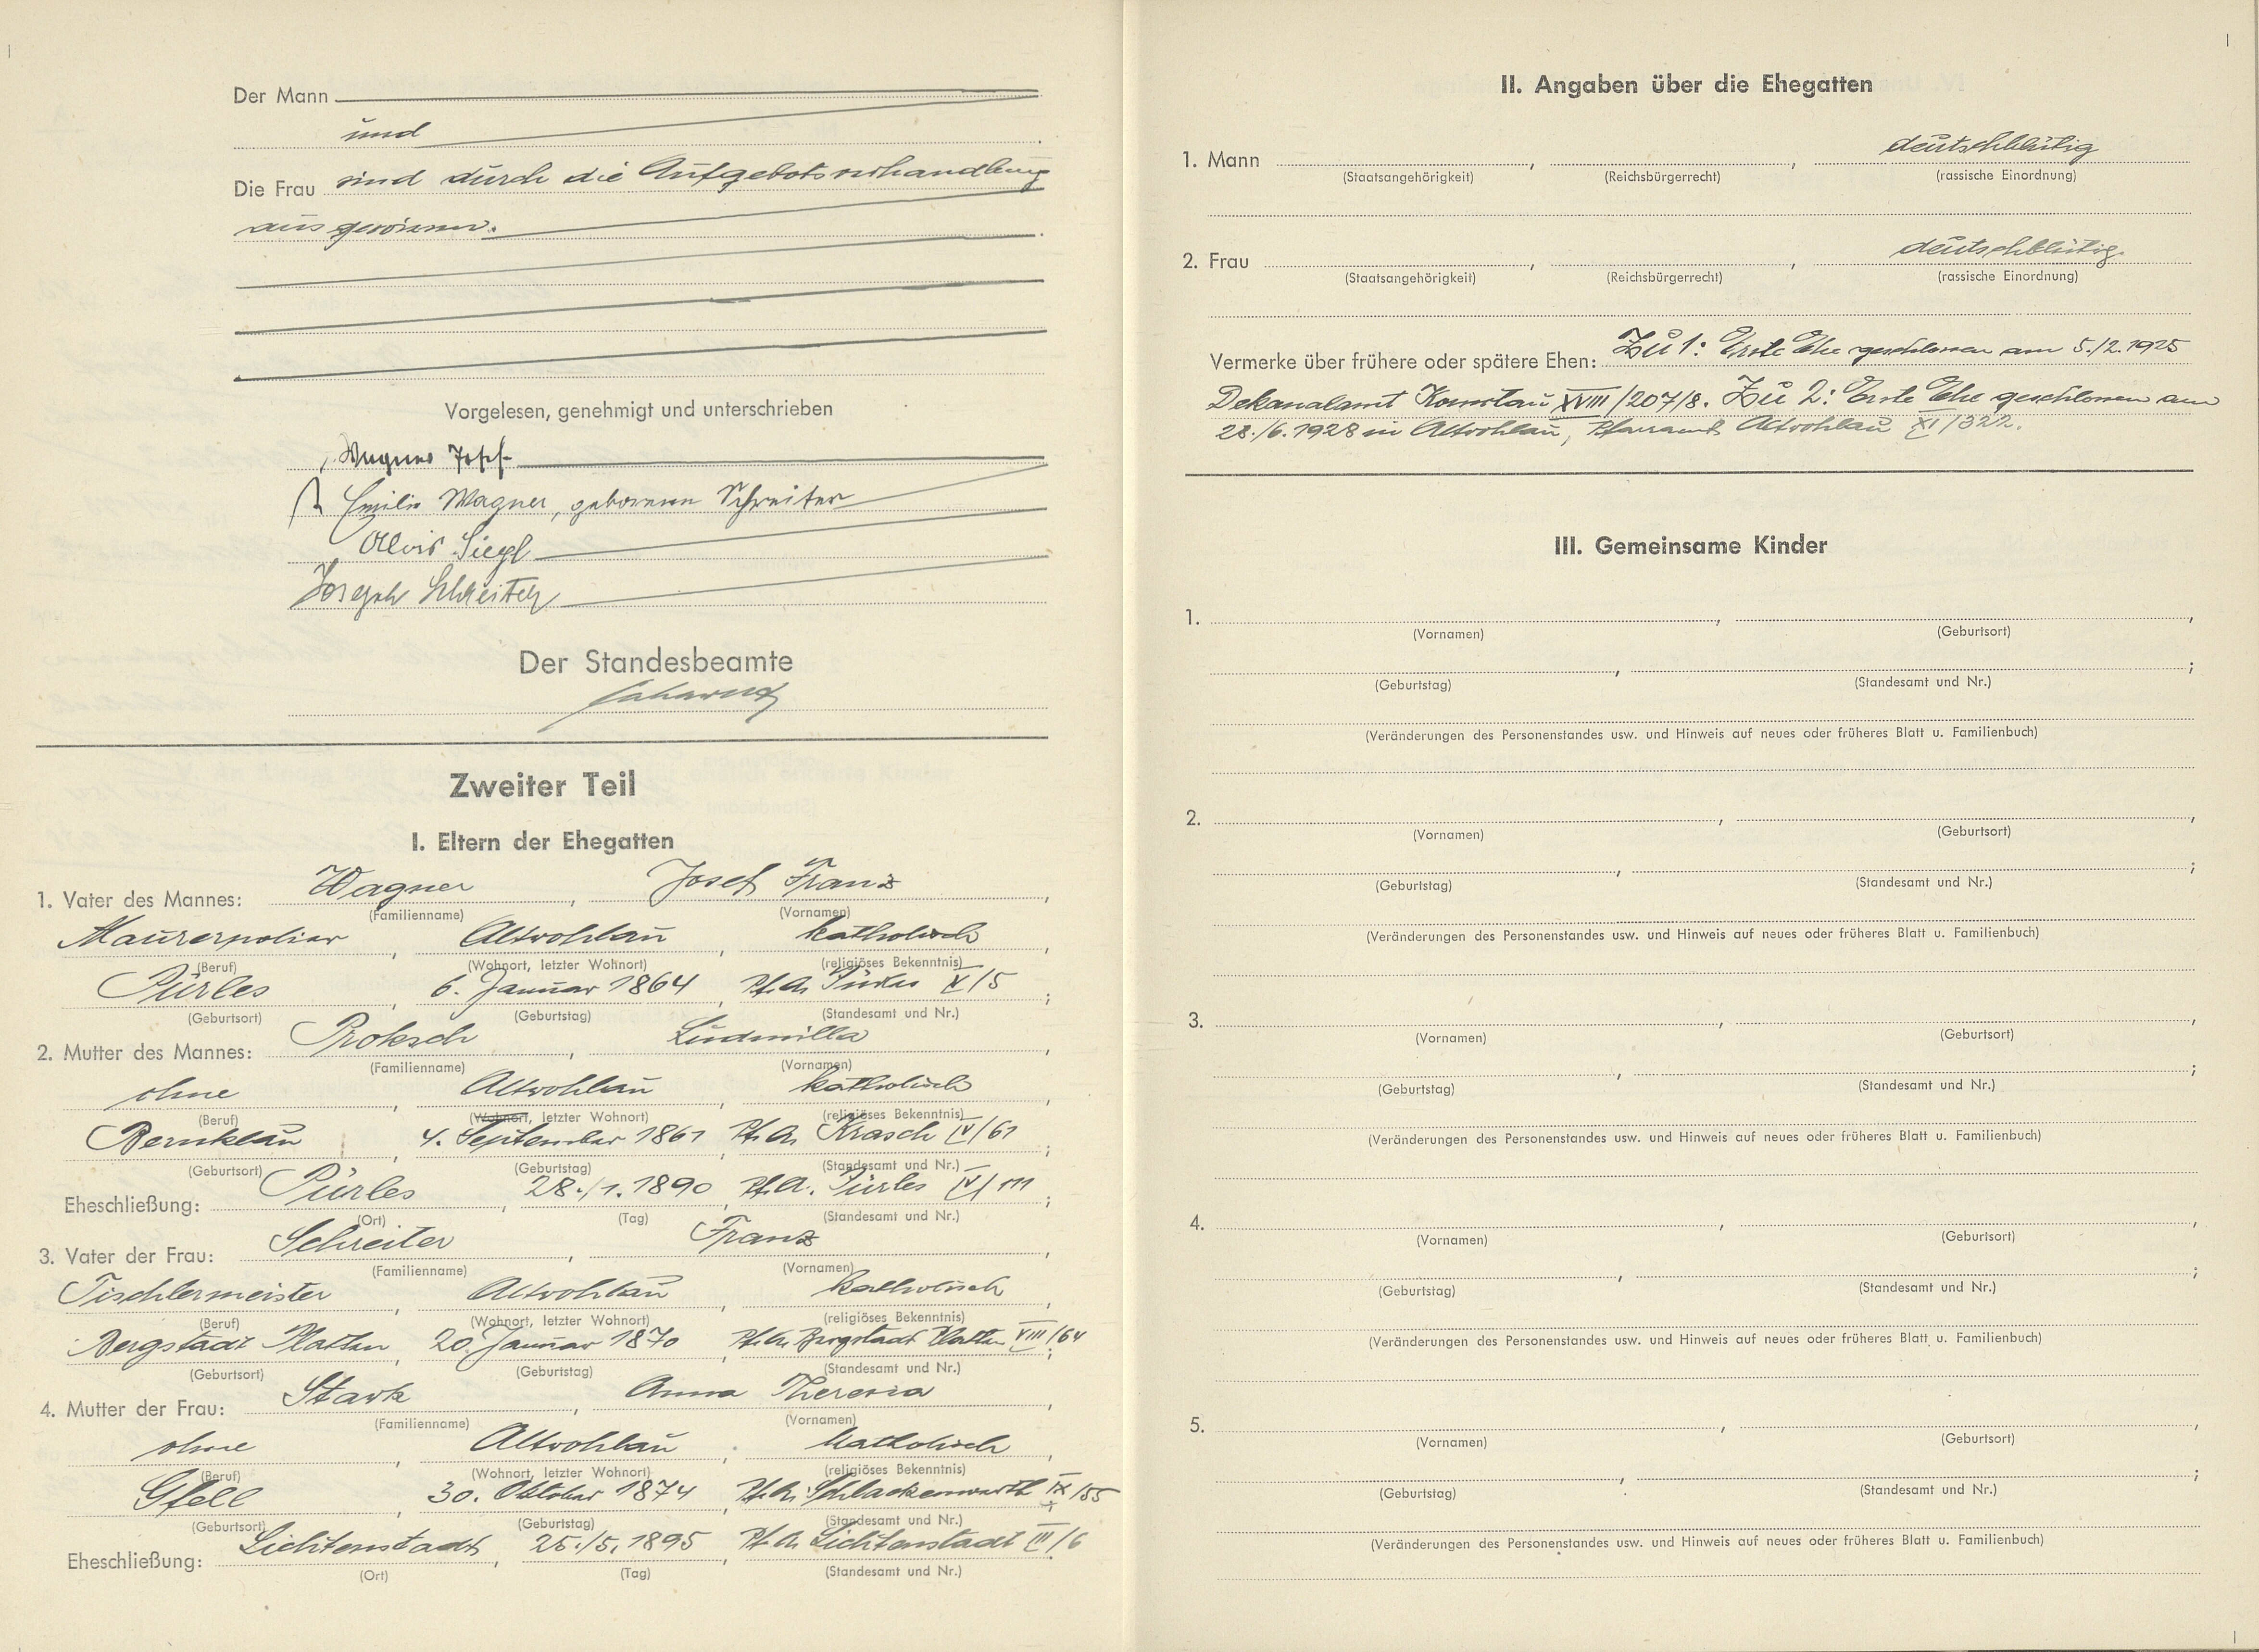 Der Mann
und
Die Frau sind durch die Aufgebotsverhandlung
ausgewiesen.
Vorgelesen, genehmigt und unterschrieben
Wagner Josef
Emilie Wagner, geborenen Schreiter
Alois Siegl
Joseph Schreiter
Der Standesbeamte
Zweiter Teil
I. Eltern der Ehegatten
1. Vater des Mannes: Wagner, Josef Franz,
(Familienname) (Vornamen)
Maurerpolier, Altrohlau, katholisch,
(Beruf) (Wohnort, letzter Wohnort) (religiöses Bekenntnis)
Pürles, 6. Januar 1864, Pf.A. Pürles V/5;
(Geburtsort) (Geburtstag) (Standesamt und Nr.)
2. Mutter des Mannes: Proksch, Ludmilla,
(Familienname) (Vornamen)
ohne, Altrohlau, katholisch,
(Beruf) (Wohnort, letzter Wohnort) (religiöses Bekenntnis)
Bernklau, 4. September 1861, Pf.A. Krasch IV/61;
(Geburtsort) (Geburtstag) (Standesamt und Nr.)
Eheschließung: Pürles, 28./1.1890, Pf.A. Pürles IV/111;
(Ort) (Tag) (Standesamt und Nr.)
3. Vater der Frau: Schreiter, Franz,
(Familienname) (Vornamen)
Tischlermeister, Altrohlau, katholisch,
(Beruf) (Wohnort, letzter Wohnort) (religiöses Bekenntnis)
Bergstadt Platten, 20. Januar 1870, Pf.A. Bergstadt Platten VIII/64;
(Geburtsort) (Geburtstag) (Standesamt und Nr.)
4. Mutter der Frau: Stark, Anna Theresia,
(Familienname) (Vornamen)
ohne, Altrohlau, katholisch,
(Beruf) (Wohnort, letzter Wohnort) (religiöses Bekenntnis)
Gfell, 30. Oktober 1874, Pf.A. Schlackenwerth IX/55
(Geburtsort) (Geburtstag) (Standesamt und Nr.) ;
Eheschließung: Lichtenstadt, 25./5.1895, Pf.A. Lichtenstadt III/6
(Ort) (Tag) (Standesamt und Nr.)
II. Angaben über die Ehegatten
1. Mann , , deutschblütig
(Staatsangehörigkeit) (Reichsbürgerrecht) (rassische Einordnung)
2. Frau , , deutschblütig
(Staatsangehörigkeit) (Reichsbürgerrecht) (rassische Einordnung)
Vermerke über frühere oder spätere Ehen: Zu 1: Erste Ehe geschlossen am 5./2.1925
Dekanalamt XVIII/207/8. Zu 2: Erste Ehe geschlossen am
28./6.1928 in Altrohlau, Pfarramt Altrohlau XI/322.
III. Gemeinsame Kinder
1. , ,
(Vornamen) (Geburtsort)
, ;
(Geburtstag) (Standesamt und Nr.)
(Veränderungen des Personenstandes usw. und Hinweis auf neues oder früheres Blatt u. Familienbuch)
2. , ,
(Vornamen) (Geburtsort)
, ;
(Geburtstag) (Standesamt und Nr.)
(Veränderungen des Personenstandes usw. und Hinweis auf neues oder früheres Blatt u. Familienbuch)
3. , ,
(Vornamen) (Geburtsort)
, ;
(Geburtstag) (Standesamt und Nr.)
(Veränderungen des Personenstandes usw. und Hinweis auf neues oder früheres Blatt u. Familienbuch)
4. , ,
(Vornamen) (Geburtsort)
, ;
(Geburtstag) (Standesamt und Nr.)
(Veränderungen des Personenstandes usw. und Hinweis auf neues oder früheres Blatt u. Familienbuch)
5. , ,
(Vornamen) (Geburtsort)
, ;
(Geburtstag) (Standesamt und Nr.)
(Veränderungen des Personenstandes usw. und Hinweis auf neues oder früheres Blatt u. Familienbuch)